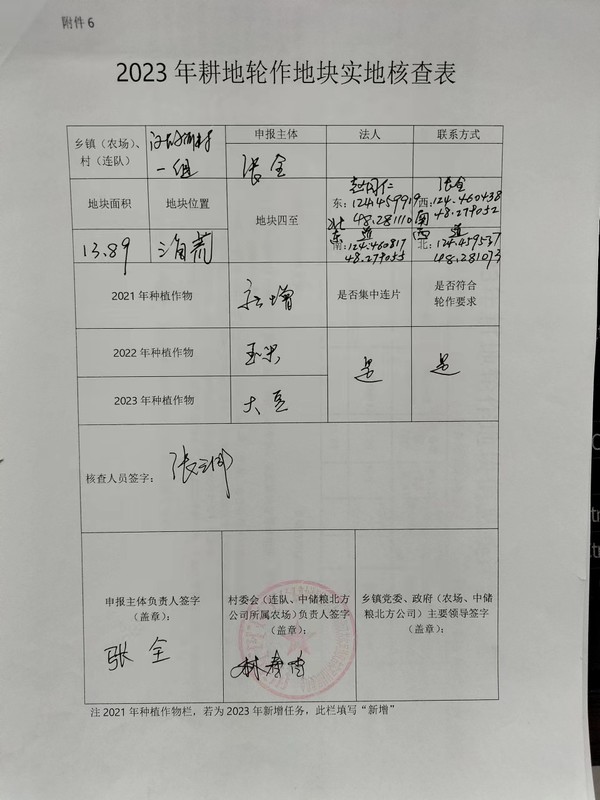 附件 6
2023 年耕地轮作地块实地核查表
乡镇（农场）、村（连队）
一组
申报主体
张全
法人
联系方式
地块面积
地块位置
13.89
地块四至
赵国仁
东：124.459919
48.281110
张全
西：124.460438
48.279052
南
道
南：124.460817
48.279055
西 道
北：124.459537
48.281073
2021 年种植作物
新增
是否集中连片
是否符合轮作要求
2022 年种植作物
玉米
是
是
2023 年种植作物
大豆
核查人员签字：
申报主体负责人签字
（盖章）：
张全
村委会（连队、中储粮北方
公司所属农场）负责人签字
（盖章）：
乡镇党委、政府（农场、中储
粮北方公司）主要领导签字
（盖章）：
注 2021 年种植作物栏，若为 2023 年新增任务，此栏填写“新增”